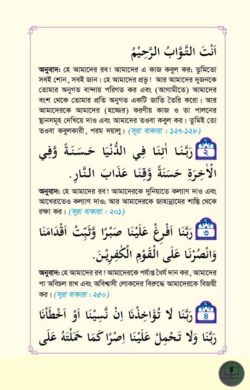 اَنْتَ التَّوَّابُ الرَّحِيْمُ
অনুবাদ: হে আমাদের রব! আমাদের এ কাজ কবুল কর; তুমিতো
সবই শোন, সবই জান। হে আমাদের প্রভু! আর আমাদের দুজনকে
তোমার অনুগত বান্দায় পরিণত কর এবং (আগামীতে) আমাদের
বংশ থেকে তোমার প্রতি অনুগত একটি জাতি তৈরি করো। আর
আমাদেরকে আমাদের (হজ্জের) করণীয় কাজ ও তা পালনের
স্থানসমূহ দেখিয়ে দাও এবং আমাদের তওবা কবুল কর। তুমিই তো
তওবা কবুলকারী, পরম দয়ালু। (সূরা বাকারা : ১২৭-১২৮)
২ رَبَّنَا اٰتِنَا فِي الدُّنْيَا حَسَنَةً وَّفِي
الْاٰخِرَةِ حَسَنَةً وَّقِنَا عَذَابَ النَّارِ.
অনুবাদ: হে আমাদের রব! আমাদেরকে দুনিয়াতে কল্যাণ দাও এবং
আখেরাতেও কল্যাণ দাও; আর আমাদেরকে জাহান্নামের শাস্তি থেকে
রক্ষা কর। (সূরা বাকারা : ২০১)
৩ رَبَّنَا اَفْرِغْ عَلَيْنَا صَبْرًا وَّثَبِّتْ اَقْدَامَنَا
وَانْصُرْنَا عَلَى الْقَوْمِ الْكٰفِرِيْنَ.
অনুবাদ: হে আমাদের রব! আমাদেরকে পর্যাপ্ত ধৈর্য দান কর, আমাদের
পা অবিচল রাখ এবং অবিশ্বাসী লোকদের বিরুদ্ধে আমাদেরকে বিজয়ী
কর। (সূরা বাকারা : ২৫০)
৪ رَبَّنَا لَا تُؤَاخِذْنَا اِنْ نَّسِيْنَا اَوْ اَخْطَأْنَا
رَبَّنَا وَلَا تَحْمِلْ عَلَيْنَا اِصْرًا كَمَا حَمَلْتَهٗ عَلَى